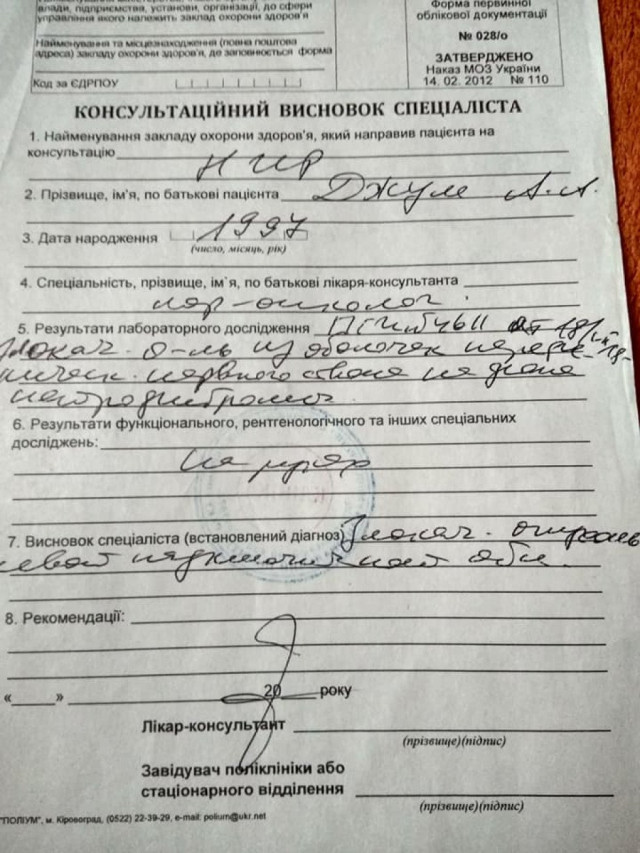 влади, підприємства, установи, організації, до сфери
управління якого належить заклад охорони здоров'я
Найменування та місцезнаходження (повна поштова
адреса) закладу охорони здоров'я, де заповнюється форма
Код за ЄДРПОУ
Форма первинної
облікової документації
№ 028/о
ЗАТВЕРДЖЕНО
Наказ МОЗ України
14. 02. 2012 № 110
КОНСУЛЬТАЦІЙНИЙ ВИСНОВОК СПЕЦІАЛІСТА
1. Найменування закладу охорони здоров'я, який направив пацієнта на
консультацію
2. Прізвище, ім'я, по батькові пацієнта Джуле А.А.
3. Дата народження 1997
(число, місяць, рік)
4. Спеціальність, прізвище, ім`я, по батькові лікаря-консультанта
онколог
5. Результати лабораторного дослідження
Злокач. о-ль из оболочек
нервного ствола на фоне
6. Результати функціонального, рентгенологічного та інших спеціальних
досліджень:
на руках
7. Висновок спеціаліста (встановлений діагноз) Злокач.
8. Рекомендації:
«____» 20 року
Лікар-консультант
(прізвище)(підпис)
Завідувач поліклініки або
стаціонарного відділення
(прізвище)(підпис)
"ПОЛІУМ", м. Кіровоград, (0522) 22-39-29, e-mail: polium@ukr.net